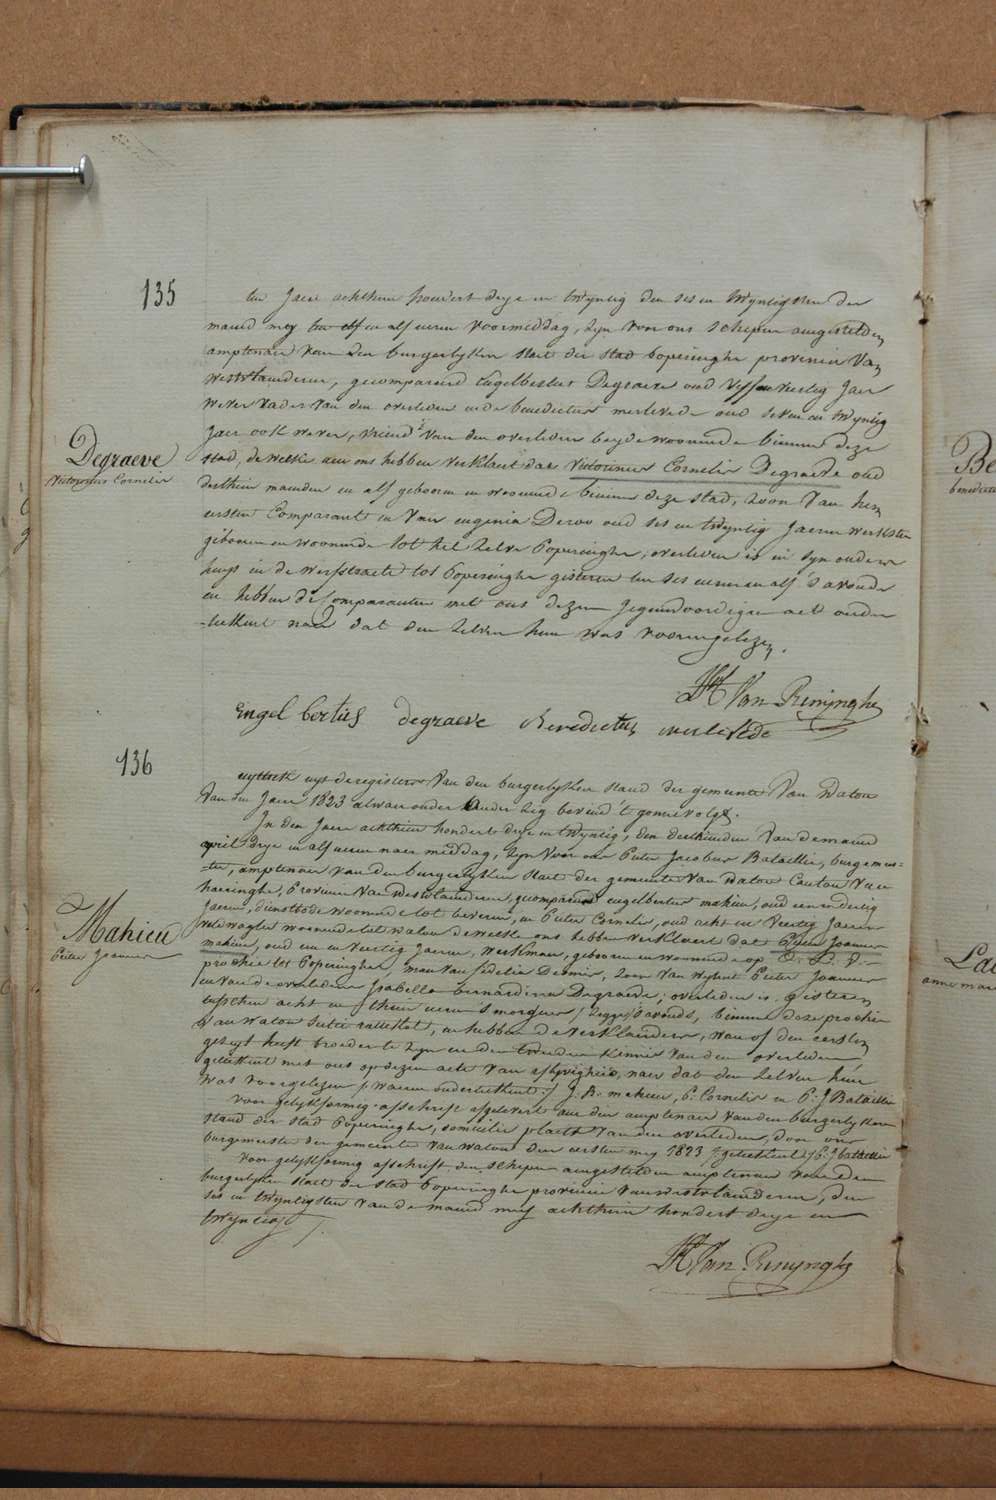 135
ten Jaere achthien hondert drye en twyntig den ses en twyntigsten der
maend mey ten elf en alf uren voormiddag, zyn voor ons schepen aengestelden
amptenaer van den burgerlyken staet der stad Poperinghe provincie van
Westvlaenderen, gecompareerd Engelbertus Degraeve oud vyf en viertig Jaer
wever vader van den overleden ende benedictus merlevede oud seven en twyntig
Jaer ook wever, vriend van den overleden beyde woonende binnen deze
Degraeve
Victorinus Cornelis
stad, dewelke aen ons hebben verklaert dat Victorinus Cornelis Degraeve oud
derthien maenden en alf geboren en woonende binnen deze stad, zoon van hen
eersten Comparant en van eugenia Devos oud ses en twyntig Jaeren werkster
geboren en woonende tot het zelve Poperinghe, overleden is in syn ouders
huys in de werfstraete tot Poperinghe gisteren ten ses uren en alf 's avonds
en hebben de Comparanten met ons dezen jegenwoordigen act onder
-teekent naer dat den zelven hun was voorengelezen.
Van Reninghe
Engel bertus degraeve Benedictus merlevede
136
uyttrek uyt de registers van den burgerlyken stand der gemeente van Watou
van den Jaer 1823 alwaer onder ander zig bevind 't gonne volgt.
In den Jaere achthien hondert drye en twyntig, den derthienden van de maend
april drye en alf uren naer middag, zyn voor ons Pieter Jacobus Bataillie, burgemees-
-ter, amptenaer van den burgerlyken staet der gemeente van Watou Canton
haeringhe, Provincie van Westvlaenderen, gecompareerd engelbertus mahieu, oud een en dertig
Mahieu
Pieter Joannes
Jaeren, dienstbode woonende tot beveren, en Pieter Cornelis, oud acht en veertig Jaeren
veldwagter woonende tot watou dewelke ons hebben verklaert dat Pieter Joannes
mahieu, oud een en veertig Jaeren, werkman, geboren en woonende op O. L. V.
prochie tot Poperinghe, man van fidelia Desmis, zoon van wylent Pieter Joannes
en van de overleden Isabella bernardina Degraeve; overleden is gisteren
tusschen acht en thien uren 's morgens / zegge / 's avonds, binnen deze prochie
van watou sectie rattekot, en hebben de verklaeders, waer of den eersten
gezeyt heeft broeder te zyn en den tweeden kennis van den overleden
geteekent met ons op dezen acte van aflyvigheid, naer dat den zelven hun
was voorgelezen / waeren onderteekent :/ J. B. mahieu, P. Cornelis en P. J Bataillie
Voor gelykformig afschrift afgelevert aen den amptenaer van den burgerlyken
stand der stad Poperinghe, domicilie plaets van den overleden, door ons
burgemeester der gemeente van watou den eersten mey 1823 / geteekent / P. J bataillie
Voor gelykformig afschrift den schepen aengestelden amptenaer van den
burgerlyken staet der stad Poperinghe provincie van westvlaenderen, den
ses en twyntigsten van de maend mey achthien hondert drye en
twyntig
Van Reninghe
Be
La